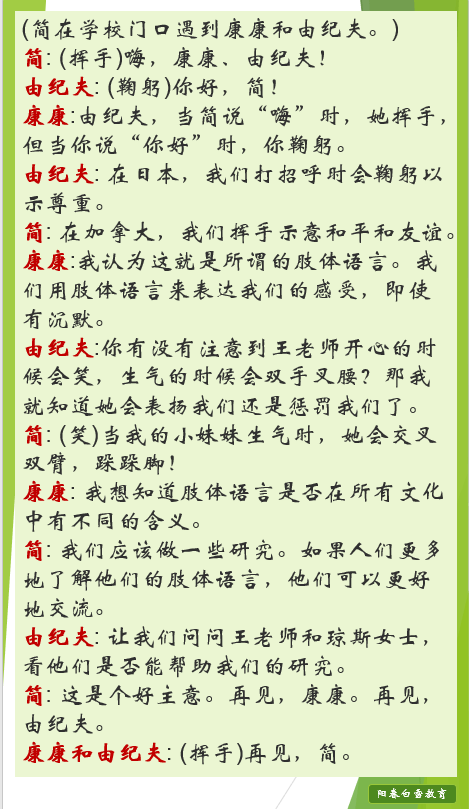 (简在学校门口遇到康康和由纪夫。)
简: (挥手)嗨，康康、由纪夫！
由纪夫: (鞠躬)你好，简！
康康:由纪夫，当简说“嗨”时，她挥手，
但当你说“你好”时，你鞠躬。
由纪夫: 在日本，我们打招呼时会鞠躬以
示尊重。
简: 在加拿大，我们挥手示意和平和友谊。
康康:我认为这就是所谓的肢体语言。我
们用肢体语言来表达我们的感受，即使
有沉默。
由纪夫:你有没有注意到王老师开心的时
候会笑，生气的时候会双手叉腰？那我
就知道她会表扬我们还是惩罚我们了。
简: (笑)当我的小妹妹生气时，她会交叉
双臂，跺跺脚！
康康: 我想知道肢体语言是否在所有文化
中有不同的含义。
简: 我们应该做一些研究。如果人们更多
地了解他们的肢体语言，他们可以更好
地交流。
由纪夫: 让我们问问王老师和琼斯女士，
看他们是否能帮助我们的研究。
简: 这是个好主意。再见，康康。再见，
由纪夫。
康康和由纪夫: (挥手)再见，简。
阳春白雪教育